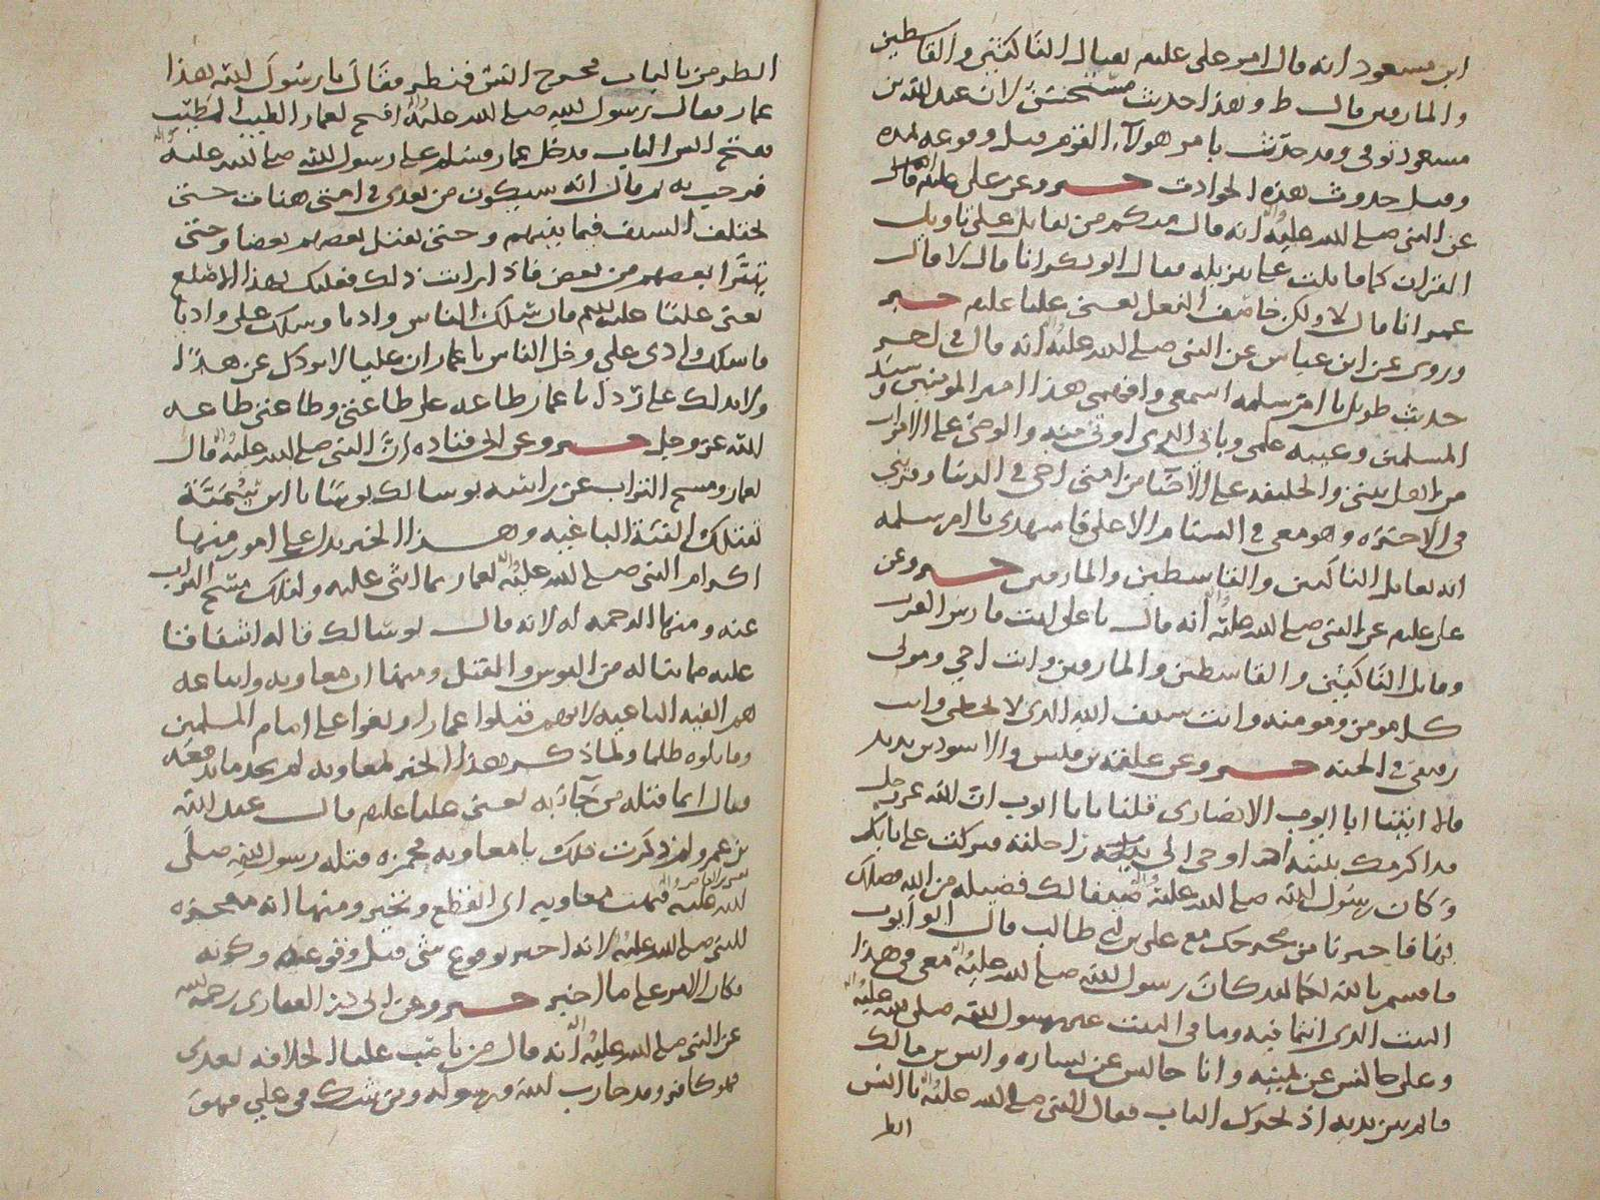 ابن مسعود انه قال امر علي عليلم بقتال الناكثين والقاسطين
والمارقين قال ط وهذا حديث مستحسن لان عبد الله بن
مسعود توفي وقد حدّث بامر هولاء القوم قبل وقوعه لمده
وقبل حدوث هذه الحوادث خبر وعن علي عليلم قال
عن النبي صلى الله عليه انه قال منكم من يقاتل على تاويل
القران كما قاتلت على تنزيله فقال ابو بكر انا قال لا قال
عمر انا قال لا ولكن خاصف النعل يعني عليا عليلم خبر
وروي عن ابن عباس عن النبي صلى الله عليه انه قال في اخر
حديث طويل يا ام سلمه اسمعي وافهمي هذا امير المومنين سيد
المسلمين وعيبه علمي وبابي الذي اوتى منه والوصي على الاموات
من اهل بيتي والخليفه على الاحيا من امتي اخي في الدنيا وقريني
في الآخره وهو معي في السنام الاعلى فاشهدي يا ام سلمه
انه يقاتل الناكثين والقاسطين والمارقين خبر وعن
علي عليلم عن النبي صلى الله عليه انه قال يا علي انت فارس العرب
وقاتل الناكثين والقاسطين والمارقين وانت اخي ومولى
كل مومن ومومنه وانت سيف الله الذي لا يخطي وانت
رفيقي في الجنه خبر وعن علقمه بن قيس والاسود بن يزيد
قالا اتينا ابا ايوب الانصاري فقلنا يا با ايوب ان الله عز وجل
قد اكرمك بنبيه اذ اوحى الى راحلته فبركت على بابك
وكان رسول الله صلى الله عليه ضيفا لك فضيله من الله فضلك
بها فاخبرنا من مخرجك مع علي بن ابي طالب قال ابو ايوب
فاقسم بالله لكما لقد كان رسول الله صلى الله عليه معي في هذا
البيت الذي انتما فيه وما في البيت غير رسول الله صلى الله عليه
وعلي جالس عن يمينه وانا جالس عن يساره وانس بن مالك
قائم بين يديه اذ تحرك الباب فقال النبي صلى الله عليه يا انس
انظر
انظر من بالباب فخرج انس فنظر فقال يا رسول الله هذا
عمار فقال رسول الله صلى الله عليه افتح لعمار الطيب المطيّب
ففتح انس الباب فدخل عمار فسلم على رسول الله صلى الله عليه
فرحب به ثم قال انه سيكون من بعدي في امتي هنات حتى
يختلف السيف فيما بينهم وحتى يقتل بعضهم بعضا وحتى
يتبرّا بعضهم من بعض فاذا رايت ذلك فعليك بهذا الاصلع
يعني عليّا عليلم فان سلك الناس واديا وسلك علي واديا
فاسلك وادي علي وخل الناس يا عمار ان عليا لا يردك عن هدًا
ولا يدلك على ردى يا عمار طاعه علي طاعتي وطاعتي طاعه
الله عز وجل خبر وعن ابي قتاده انّ النبي صلى الله عليه قال
لعمار ومسح التراب عن راسه بوسا لك بوسًا يا ابن سُميّة
تقتلك الفئة الباغيه وهذا الخبر يدل على امور منها
اكرام النبي صلى الله عليه لعمار بما اثنى عليه ولذلك مسح التراب
عنه ومنها الرحمه له لانه قال بوسا لك قاله اشفاقا
عليه مما يناله من البوس والقتل ومنها ان معاويه واتباعه
هم الفئه الباغيه لانهم قتلوا عمارا وبغوا على امام المسلمين
وقاتلوه ظلما ولما ذكر هذا الخبر لمعاويه لم يجد ما يدفعه
فقال انما قتله من جآء به يعني عليا عليلم قال عبد الله
بن عمرو فحمزه قتله رسول الله صلى
الله عليه فبهت معاويه اي انقطع وتحير ومنها انه معجزه
للنبي صلى الله عليه لانه اخبر بوقوع شي قبل وقوعه وكونه
فكان الامر على ما اخبر خبر وعن ابي ذر الغفاري رحمه الله
عن النبي صلى الله عليه انه قال من ناصب عليا الخلافه بعدي
فهو كافر وقد حارب الله ورسوله ومن شك في علي فهو